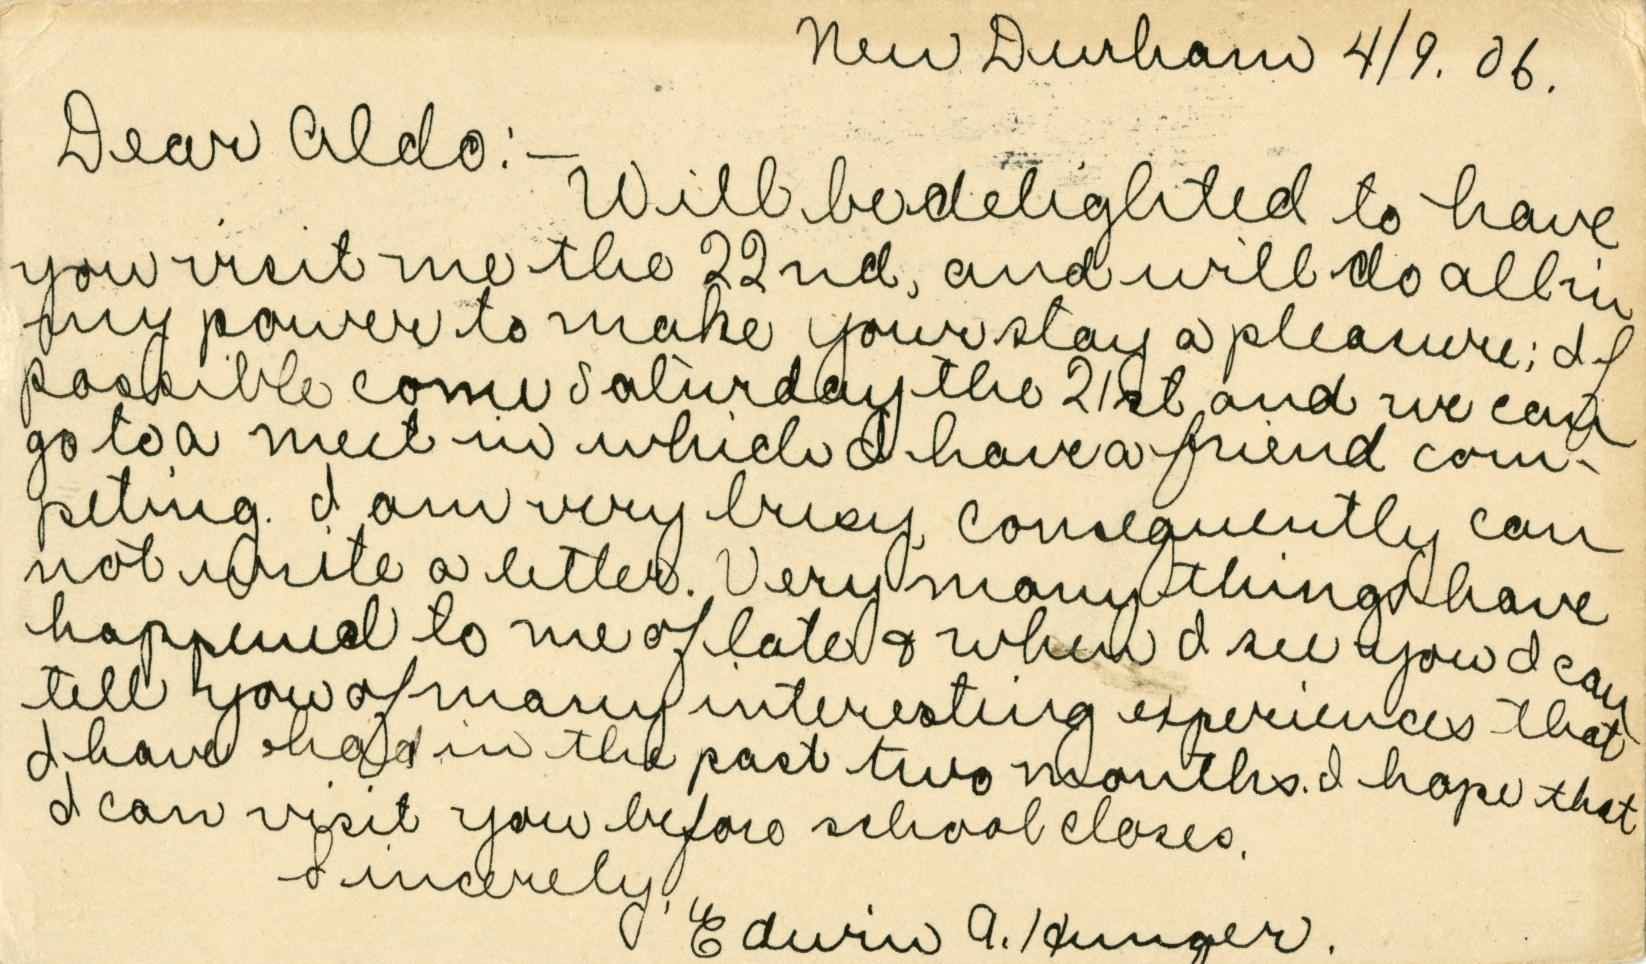 New Durham 4/9. 06.
Dear Aldo:—
Will be delighted to have
you visit me the 22nd, and will do all in
my power to make your stay a pleasure; If
possible come Saturday the 21st and we can
go to a meet in which I have a friend com-
peting. I am very busy, consequently can
not write a letter. Very many things have
happened to me of late & when I see you I can
tell you of many interesting experiences that
I have had in the past two months. I hope that
I can visit you before school closes.
Sincerely,
Edwin A. Hunger.